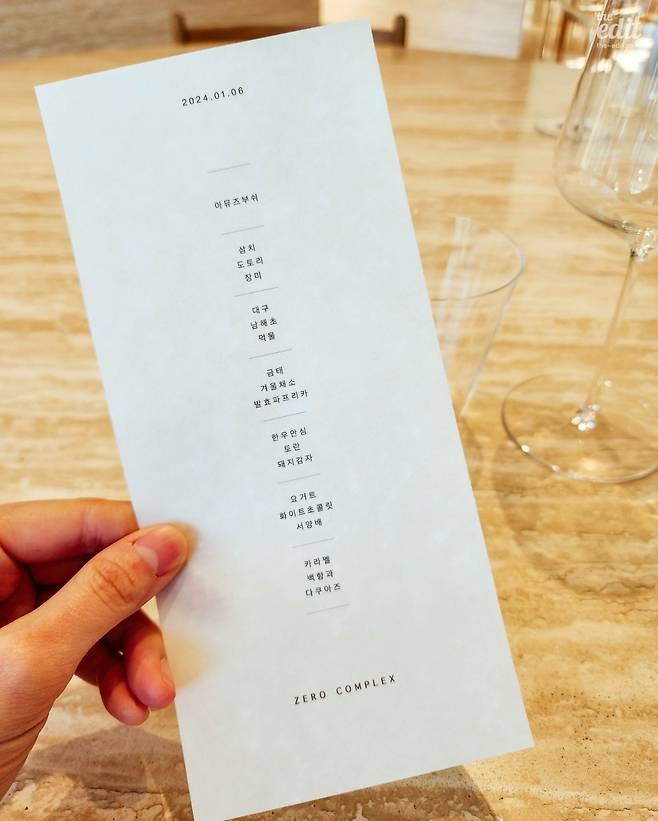 the
edit
2024.01.06
아뮤즈부쉬
삼치
도토리
장미
대구
남해초
먹물
금태
겨울채소
발효파프리카
한우안심
토란
돼지감자
요거트
화이트초콜릿
서양배
카라멜
백향과
다쿠아즈
ZERO COMPLEX